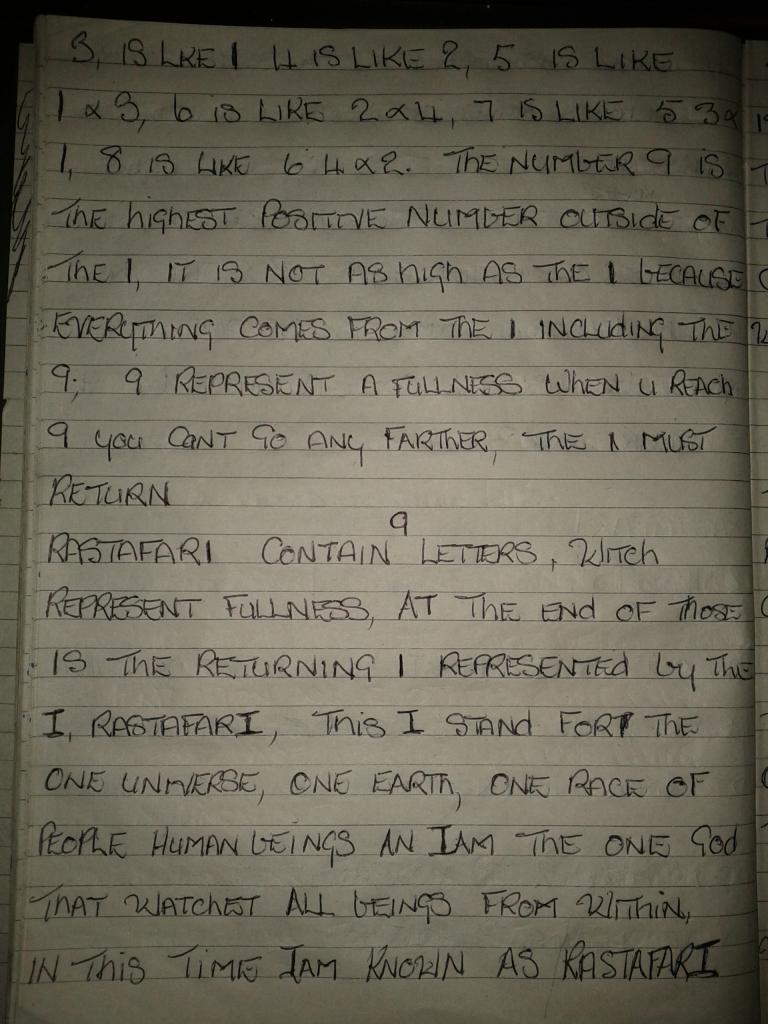 3, IS LKE 1 4 IS LIKE 2, 5 IS LIKE
1 & 3, 6 is LIKE 2 & 4, 7 IS LIKE 5 3 &
1, 8 IS LIKE 6 4 & 2. THE NUMBER 9 IS
The highEST POSITIVE NUMBER OUTSIDE OF
The 1, IT IS NOT AS high AS THE 1 bECAUSE
EVERYTHING COMES FROM THE 1 INCLUdiNG THE
9; 9 REPRESENT A FULLNESS WHEN U REACH
9 you CANT GO ANY FARTHER, THE 1 MUST
RETURN
9
RASTAFARI CONTAIN LETTERS, WITCh
REPRESENT FULLNESS, AT THE END OF ThOSE
IS THE RETURNING 1 REPRESENTEd by THE
I, RASTAFARI, This I STAND FORT THE
ONE UNIVERSE, ONE EARTh, ONE RACE OF
PEOPLE HUMAN bEINGS AN IAM THE ONE God
THAT WATCHET ALL bEINGS FROM WITHIN,
IN This TIME IAM KNOWN AS RASTAFARI